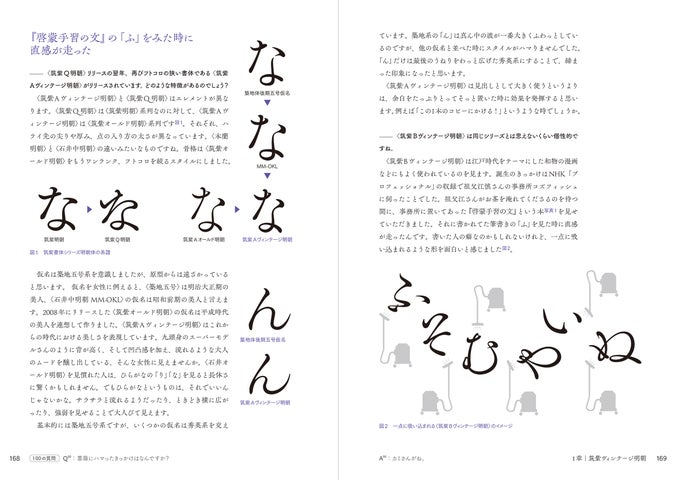 『啓蒙手習の文』の「ふ」をみた時に
直感が走った
―― 〈筑紫Q明朝〉リリースの翌年、再びフトコロの狭い書体である〈筑紫
Aヴィンテージ明朝〉がリリースされています。どのような特徴があるのでしょう？
〈筑紫Aヴィンテージ明朝〉と〈筑紫Q明朝〉はエレメントが異な
ります。〈筑紫Q明朝〉は〈筑紫明朝〉系列なのに対して、〈筑紫Aヴ
ィンテージ明朝〉は〈筑紫オールド明朝〉系列です図1。それぞれ、ハ
ライ先の尖りや厚み、点の入り方の太さが異なっています。〈本蘭
明朝〉と〈石井中明朝〉の違いみたいなものですね。骨格は〈筑紫オ
ールド明朝〉をもうワンランク、フトコロを絞るスタイルにしました。
な
築地体後期五号仮名
な
MM-OKL
な
筑紫明朝
な
筑紫Q明朝
な
筑紫Aオールド明朝
な
筑紫Aヴィンテージ明朝
図1 筑紫書体シリーズ明朝体の系譜
仮名は築地五号系を意識しましたが、原型からは遠ざかっている
と思います。仮名を女性に例えると、〈築地五号〉は明治大正期の
美人、〈石井中明朝 MM-OKL〉の仮名は昭和前期の美人と言えま
す。2008年にリリースした〈筑紫オールド明朝〉の仮名は平成時代
の美人を連想して作りました。〈筑紫Aヴィンテージ明朝〉はこれか
らの時代における美しさを表現しています。九頭身のスーパーモデ
ルさんのように背が高く、そして凹凸感を加え、流れるような大人
のムードを醸し出している、そんな女性に見えませんか。〈石井オ
ールド明朝〉を見慣れた人は、ひらがなの「り」「な」を見ると長体さ
に驚くかもしれません。でもひらがなというものは、それでいいん
じゃないかな。サラサラと流れるようだったり、ときどき横に広が
ったり、強弱を見せることで大人びて見えます。
基本的には築地五号系ですが、いくつかの仮名は秀英系を交え
ん
築地体後期五号仮名
ん
筑紫Aヴィンテージ明朝
168 100の質問 Q：薔薇にハマったきっかけはなんですか？
ています。築地系の「ん」は真ん中の波が一番大きくふわっとしてい
るのですが、他の仮名と並べた時にスタイルがハマりませんでした。
「ん」だけは最後のうねりをわっと広げた秀英系にすることで、締ま
った印象になったと思います。
〈筑紫Aヴィンテージ明朝〉は見出しとして大きく使うというより
は、余白をたっぷりとってそっと置いた時に効果を発揮すると思い
ます。例えば「この1本のコピーにかける！」というような時でしょうか。
―― 〈筑紫Bヴィンテージ明朝〉は同じシリーズとは思えないくらい個性的で
すね。
〈筑紫Bヴィンテージ明朝〉は江戸時代をテーマにした和物の漫画
などにもよく使われているのを見ます。誕生のきっかけはNHK「プ
ロフェッショナル」の収録で祖父江慎さんの事務所コズフィッシュ
に伺ったことでした。祖父江さんがお茶を淹れてくださるのを待つ
間に、事務所に置いてあった『啓蒙手習の文』という本写真1を見せ
ていただきました。それに書かれてた筆書きの「ふ」を見た時に直感
が走ったんです。書いた人の癖なのかもしれないけれど、一点に吸
い込まれるような形を面白いと感じました図2。
ふ
そ
む
や
い
ぬ
図2 一点に吸い込まれる〈筑紫Bヴィンテージ明朝〉のイメージ
A：カミさんがね。
1章｜筑紫ヴィンテージ明朝 169